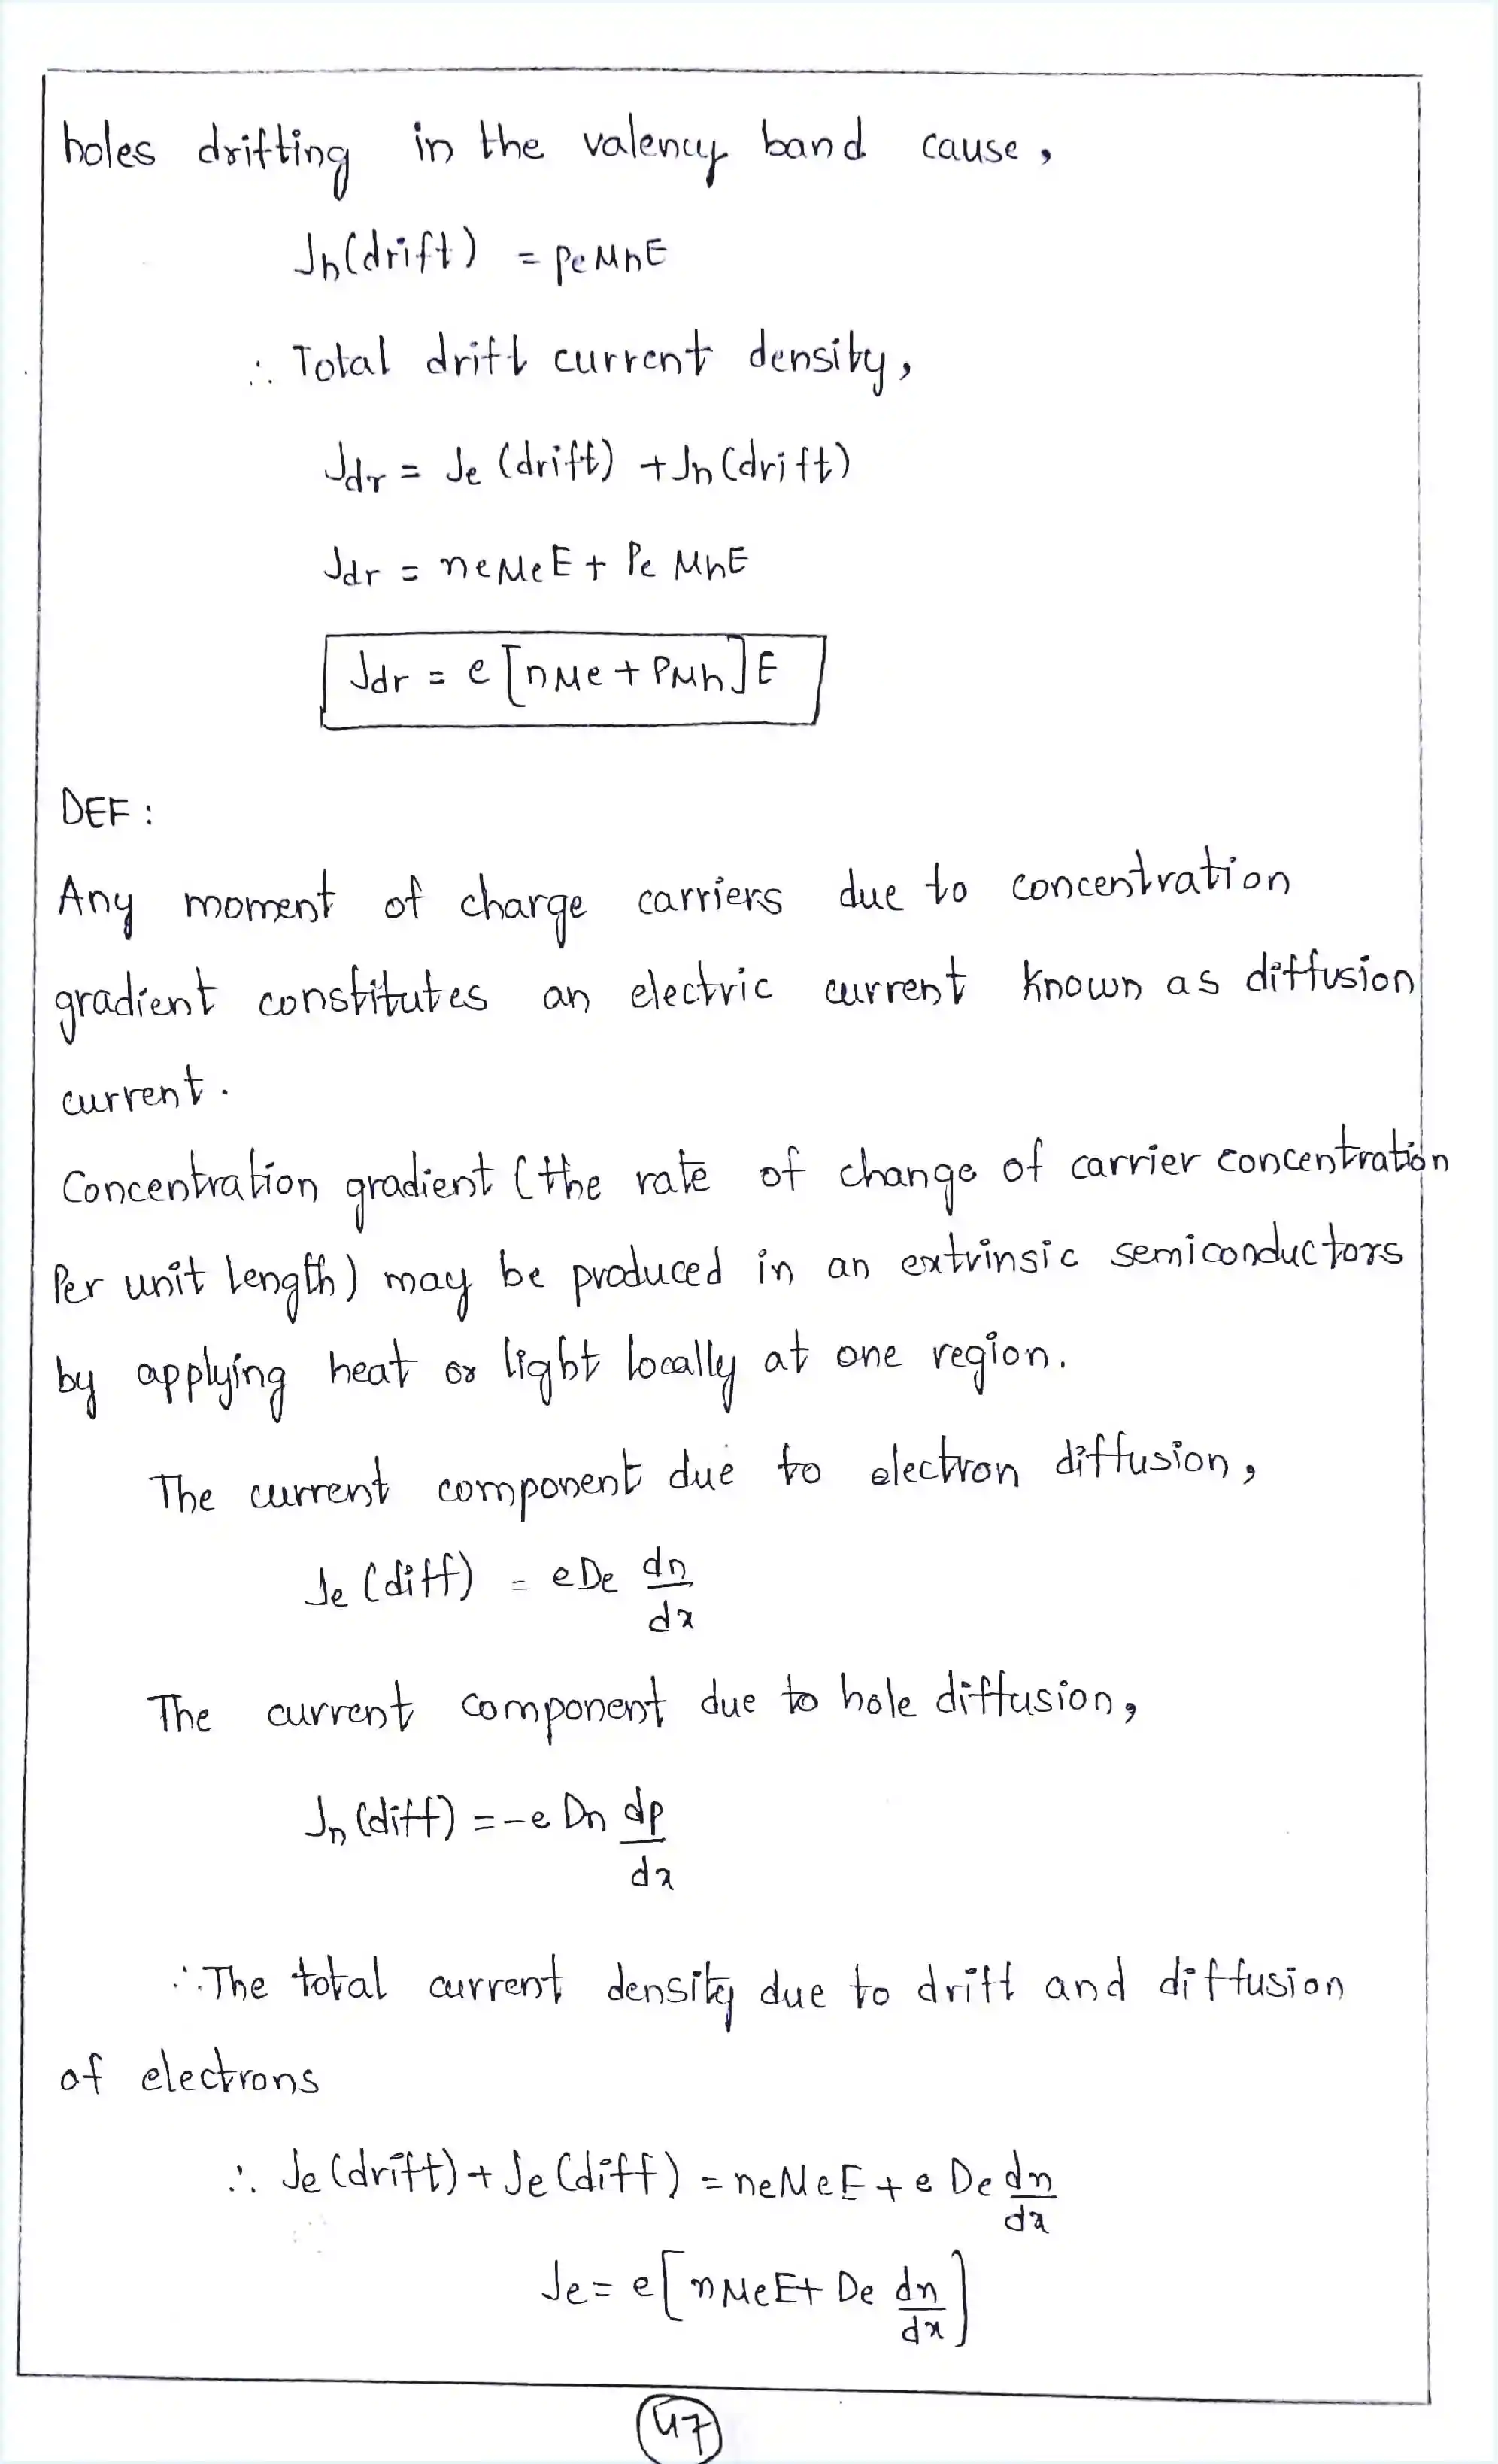 holes drifting in the valency band cause,
Jh(drift) = peμhE
∴ Total drift current density,
Jdr = Je (drift) + Jh (drift)
Jdr = neμeE + Pe μhE
Jdr = e [nμe + Pμh] E
DEF :
Any moment of charge carriers due to concentration
gradient constitutes an electric current known as diffusion
current.
Concentration gradient (the rate of change of carrier concentration
Per unit length) may be produced in an extrinsic semiconductors
by applying heat or light locally at one region.
The current component due to electron diffusion,
Je (diff) = eDe dn
dx
The current component due to hole diffusion,
Jh (diff) = -e Dh dp
dx
∴ The total current density due to drift and diffusion
of electrons
∴ Je (drift) + Je (diff) = neμeE + e De dn
dx
Je = e[nμeE + De dn
dx]
47